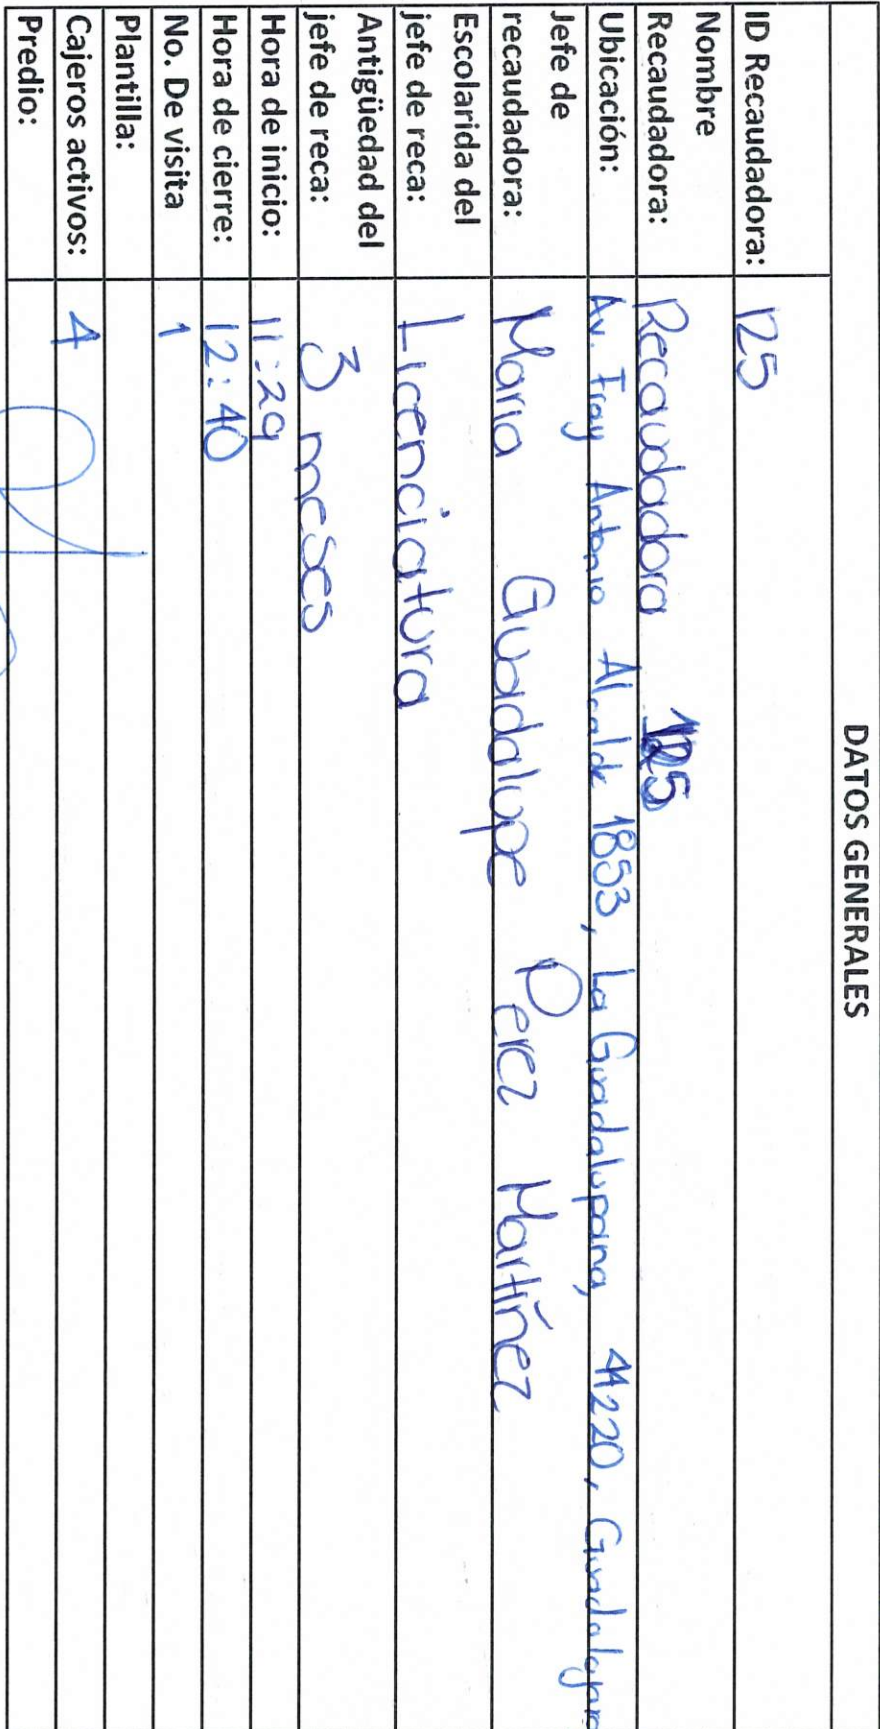 DATOS GENERALES
ID Recaudadora: 125
Nombre
Recaudadora: Recaudadora 125
Ubicación: Av. Fray Antonio Alcalde 1853, La Guadalupana, 44220, Guadalajara
Jefe de
recaudadora: Maria Guadalupe Perez Martínez
Escolarida del
jefe de reca: Licenciatura
Antigüedad del
jefe de reca: 3 meses
Hora de inicio: 11:29
Hora de cierre: 12:40
No. De visita 1
Plantilla:
Cajeros activos: 4
Predio: